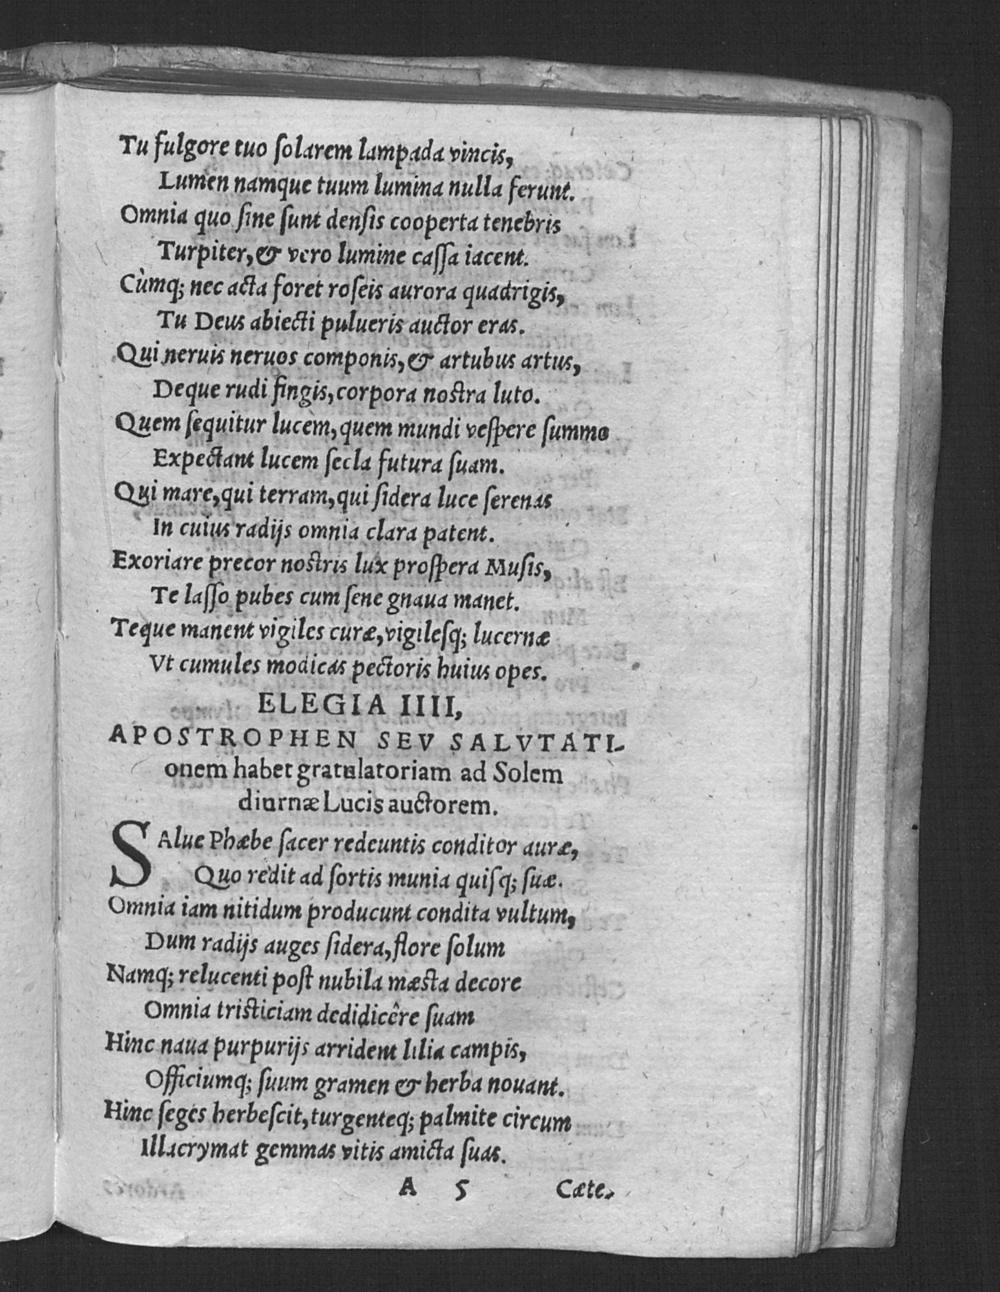 Tu fulgore tuo ſolarem lampada vincis,
Lumen namque tuum lumina nulla ferunt.
Omnia quo ſine ſunt denſis cooperta tenebris
Turpiter, & vero lumine caſſa iacent.
Cùmq; nec acta foret roſeis aurora quadrigis,
Tu Deus abiecti pulueris auctor eras.
Qui neruis neruos componis, & artubus artus,
Deque rudi fingis, corpora noſtra luto.
Quem ſequitur lucem, quem mundi veſpere ſummo
Expectant lucem ſecla futura ſuam.
Qui mare, qui terram, qui ſidera luce ſerenas
In cuius radijs omnia clara patent.
Exoriare precor noſtris lux proſpera Muſis,
Te laſſo pubes cum ſene gnaua manet.
Teque manent vigiles curæ, vigileſq; lucernæ
Vt cumules modicas pectoris huius opes.
ELEGIA IIII,
APOSTROPHEN SEV SALVTATI-
onem habet gratulatoriam ad Solem
diurnæ Lucis auctorem.
SAlue Phæbe ſacer redeuntis conditor auræ,
Quo redit ad ſortis munia quiſq; ſuæ.
Omnia iam nitidum producunt condita vultum,
Dum radijs auges ſidera, flore ſolum
Namq; relucenti poſt nubila mæſta decore
Omnia triſticiam dedidicêre ſuam
Hinc naua purpurijs arrident lilia campis,
Officiumq; ſuum gramen & herba nouant.
Hinc ſeges herbeſcit, turgenteq; palmite circum
Illacrymat gemmas vitis amicta ſuas.
A 5 Cæte-